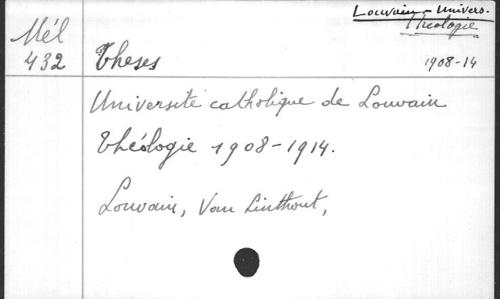 Louvain - Univers.
Théologie
Mél
432
Theses
1908-14
Université catholique de Louvain
Théologie 1908-1914.
Louvain, Van Linthout,